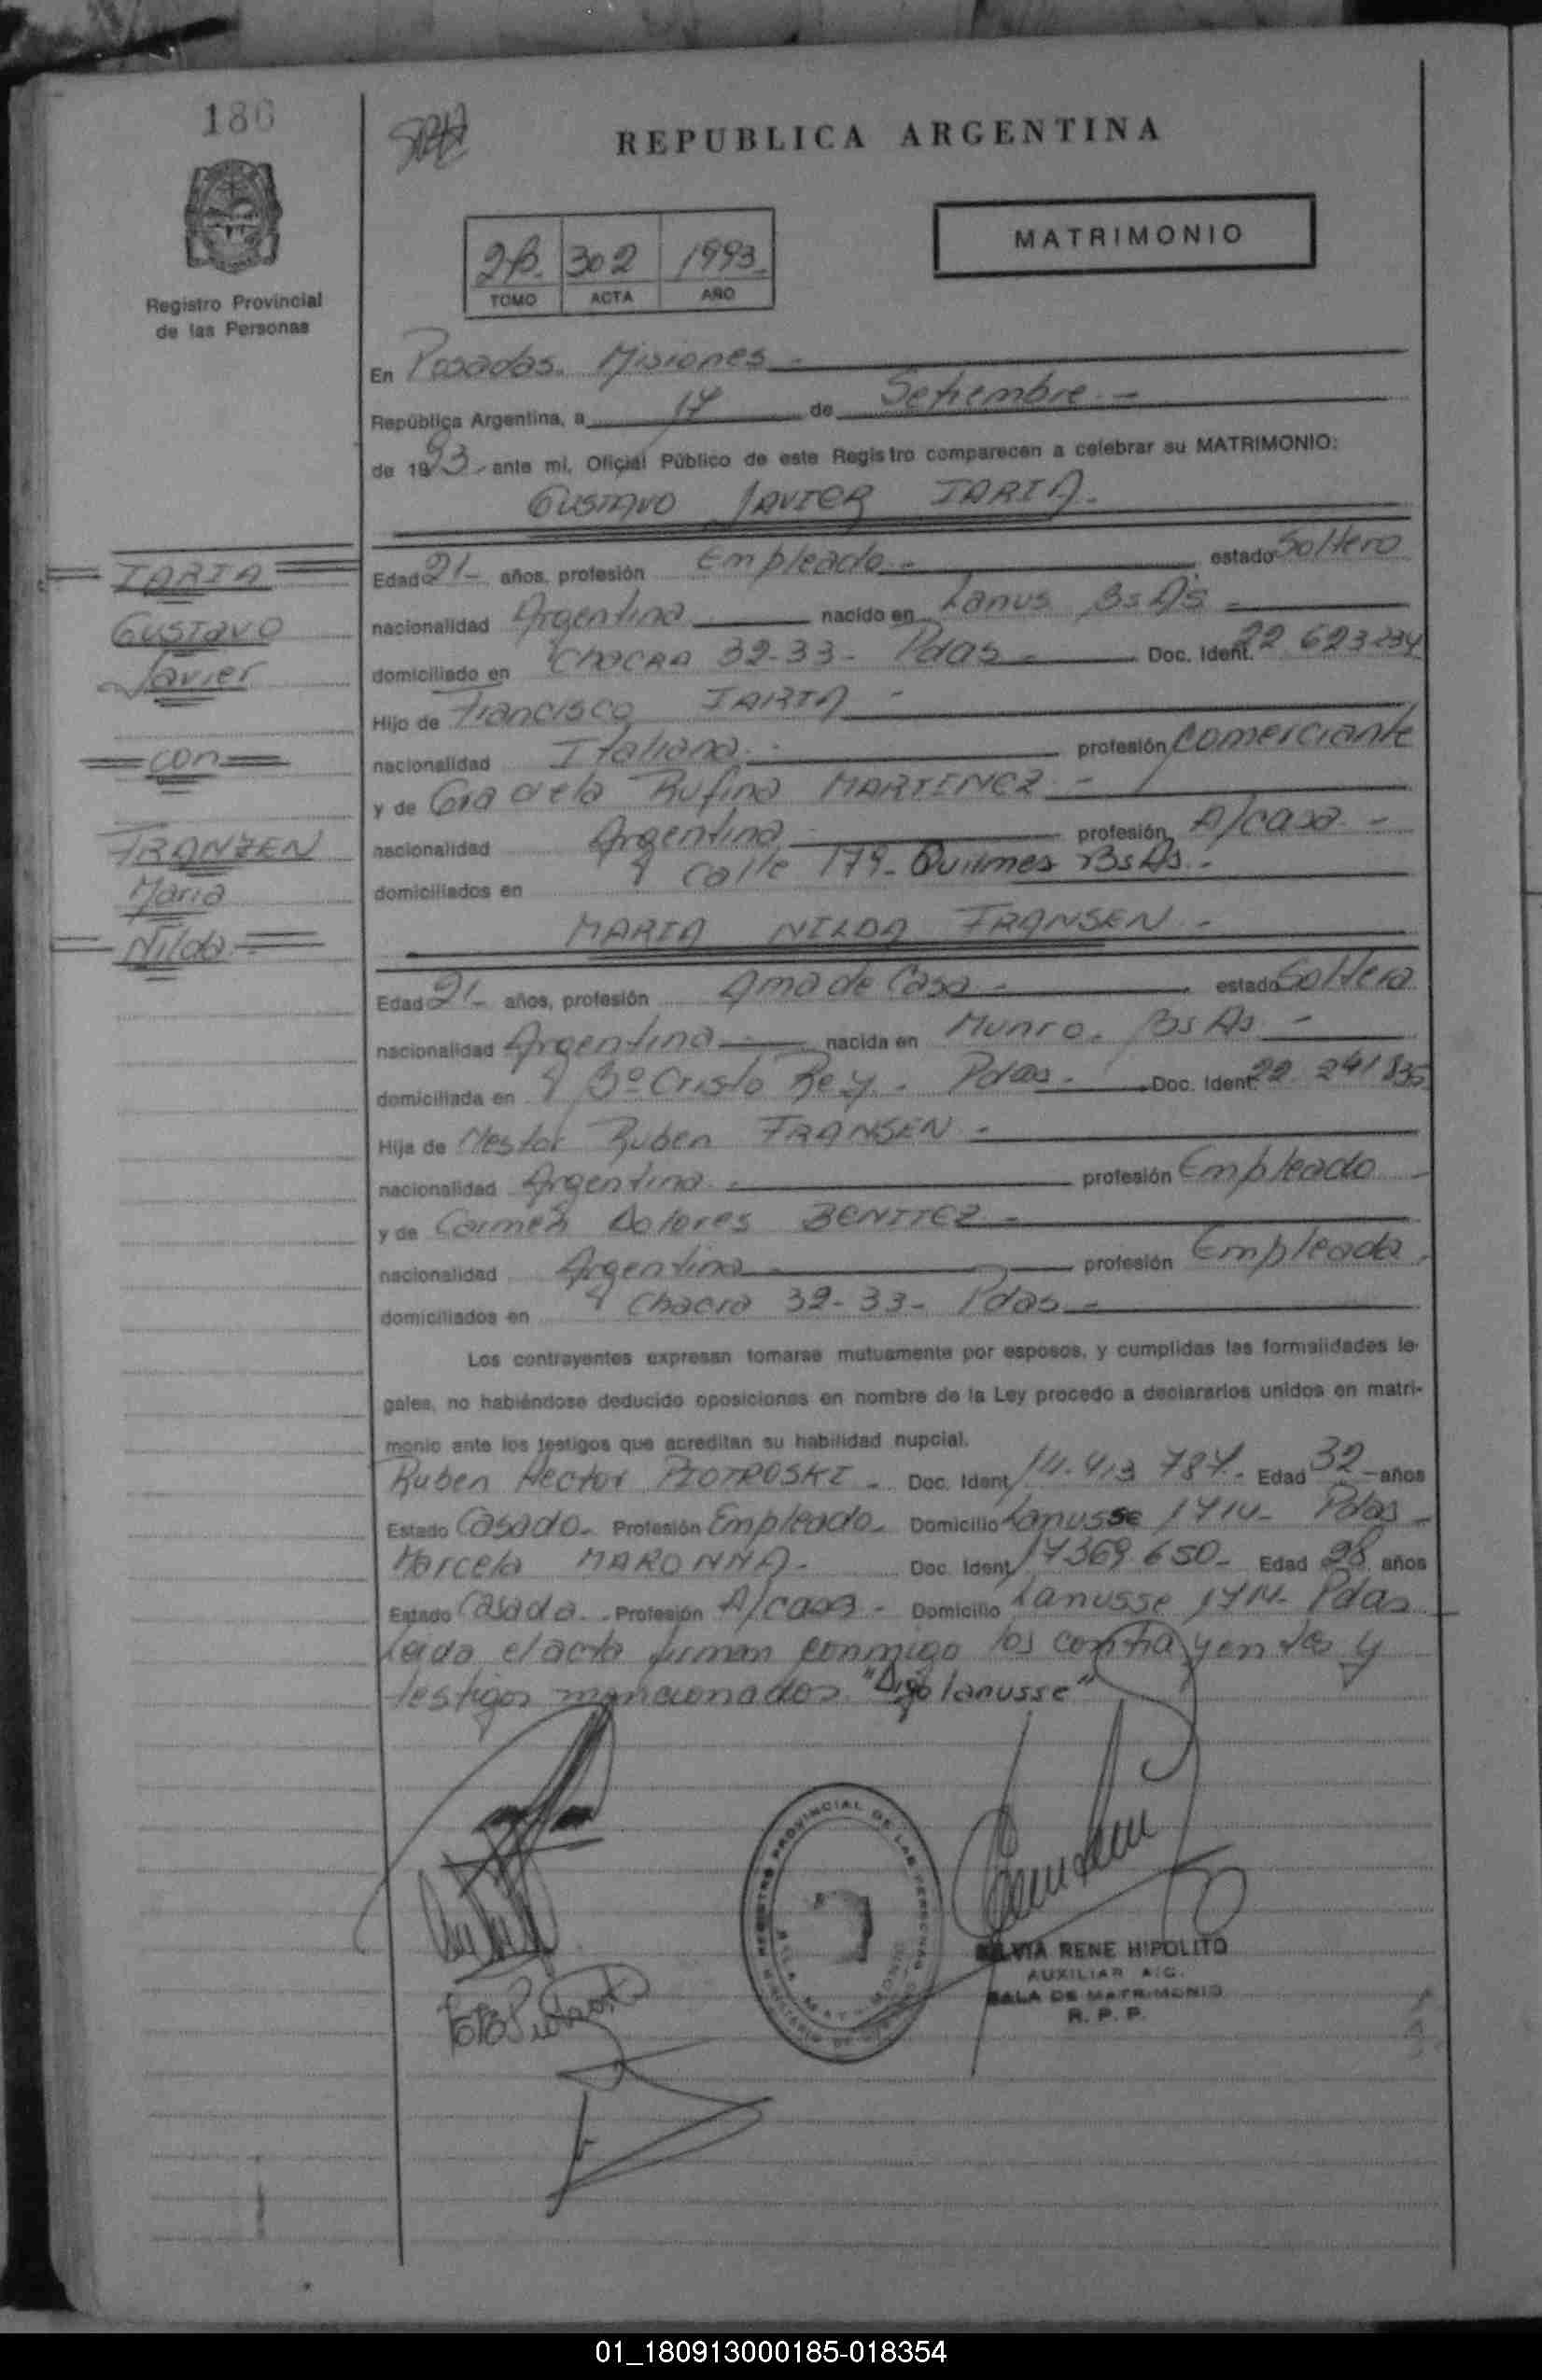 186
REPUBLICA ARGENTINA
2B. 302 1993
TOMO ACTA AÑO
MATRIMONIO
Registro Provincial
de las Personas
En Posadas. Misiones -
República Argentina, a 17 de Setiembre. -
de 1993.- ante mi, Oficial Público de este Registro comparecen a celebrar su MATRIMONIO:
GUSTAVO JAVIER IARIA.
IARIA
Gustavo
Javier
con
FRANZEN
Maria
Nilda
Edad 21- años, profesión Empleado.- estado Soltero
nacionalidad Argentina nacido en Lanus Bs As -
domiciliado en Chacra 32-33- Pdas - Doc. Ident. 22.623234
Hijo de Francisco IARIA -
nacionalidad Italiana.- profesión Comerciante
y de Graciela Rufina MARTINEZ -
nacionalidad Argentina profesión A/casa -
domiciliados en Calle 179- Quilmes Bs As.-
MARIA NILDA FRANSEN -
Edad 21- años, profesión Ama de Casa - estado Soltera
nacionalidad Argentina nacida en Munro. Bs As -
domiciliada en Bº Cristo Rey. Pdas. Doc. Ident. 22.241835
Hija de Nestor Ruben FRANSEN -
nacionalidad Argentina - profesión Empleado
y de Carmen Dolores BENITEZ -
nacionalidad Argentina - profesión Empleada
domiciliados en Chacra 32-33- Pdas -
Los contrayentes expresan tomarse mutuamente por esposos, y cumplidas las formalidades le-
gales, no habiéndose deducido oposiciones en nombre de la Ley procedo a declararlos unidos en matri-
monio ante los testigos que acreditan su habilidad nupcial.
Ruben Hector PIOTROSKI - Doc. Ident. 14.413 787- Edad 32 años
Estado Casado. Profesión Empleado. Domicilio Lanusse 1714- Pdas -
Marcela MARONNA - Doc. Ident. 17369.650- Edad 28 años
Estado Casada. Profesión A/casa - Domicilio Lanusse 1714- Pdas
Leida el acta firman conmigo los contrayentes y
testigos mencionados. "Digo lanusse"
REGISTRO PROVINCIAL DE LAS PERSONAS
SILVIA RENE HIPOLITO
AUXILIAR A/C.
SALA DE MATRIMONIO
R. P. P.
01_180913000185-018354